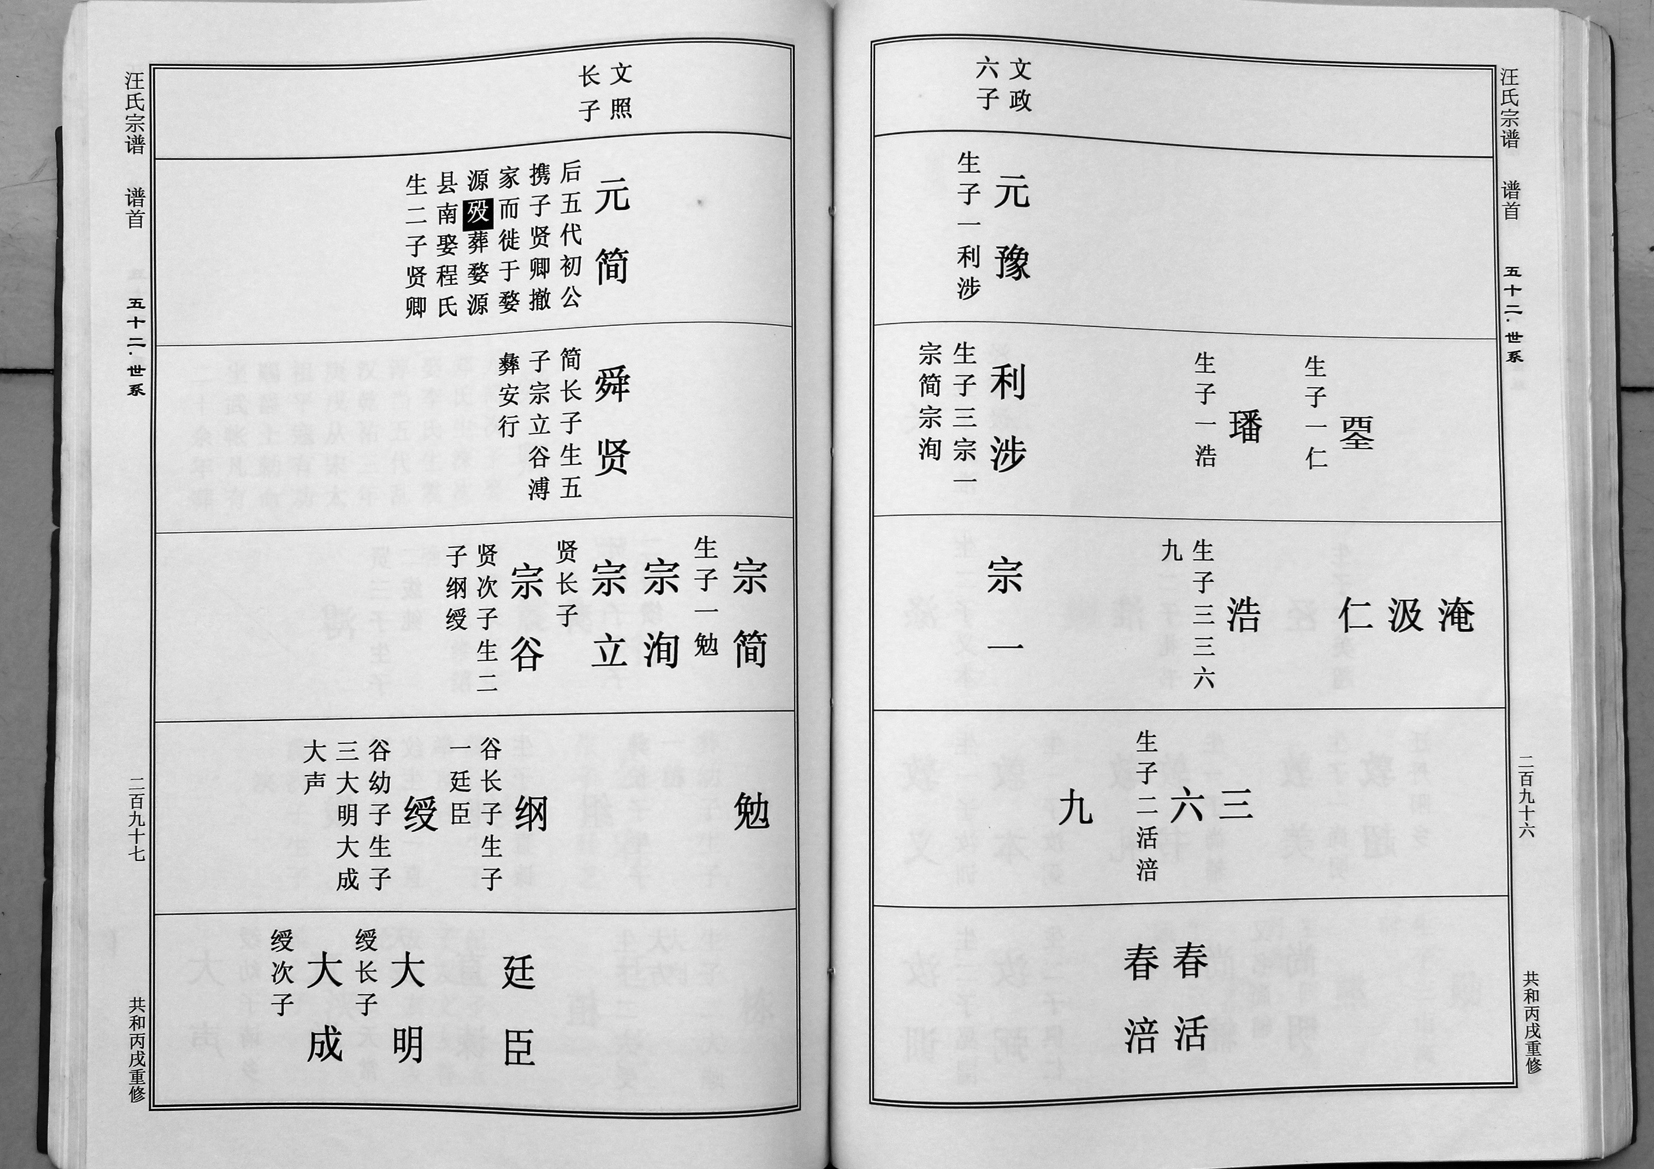 汪氏宗谱
谱首
五十二·世系
二百九十六
共和丙戌重修
文政
六子
元豫
生子一利涉
生子一仁
璠
生子一浩
利涉
生子三宗一
宗简宗洵
淹
汲
仁
浩
生子三三六
九
宗一
三
六
生子二活涪
九
春活
春涪
文照
长子
元简
后五代初公
携子贤卿撤
家而徙于婺
源殁葬婺源
县南娶程氏
生二子贤卿
舜贤
简长子生五
子宗立谷溥
彝安行
宗简
生子一勉
宗洵
宗立
贤长子
宗谷
贤次子生二
子纲绶
勉
纲
谷长子生子
一廷臣
绶
谷幼子生子
三大明大成
大声
廷臣
大明
绶长子
大成
绶次子
汪氏宗谱
谱首
五十二·世系
二百九十七
共和丙戌重修